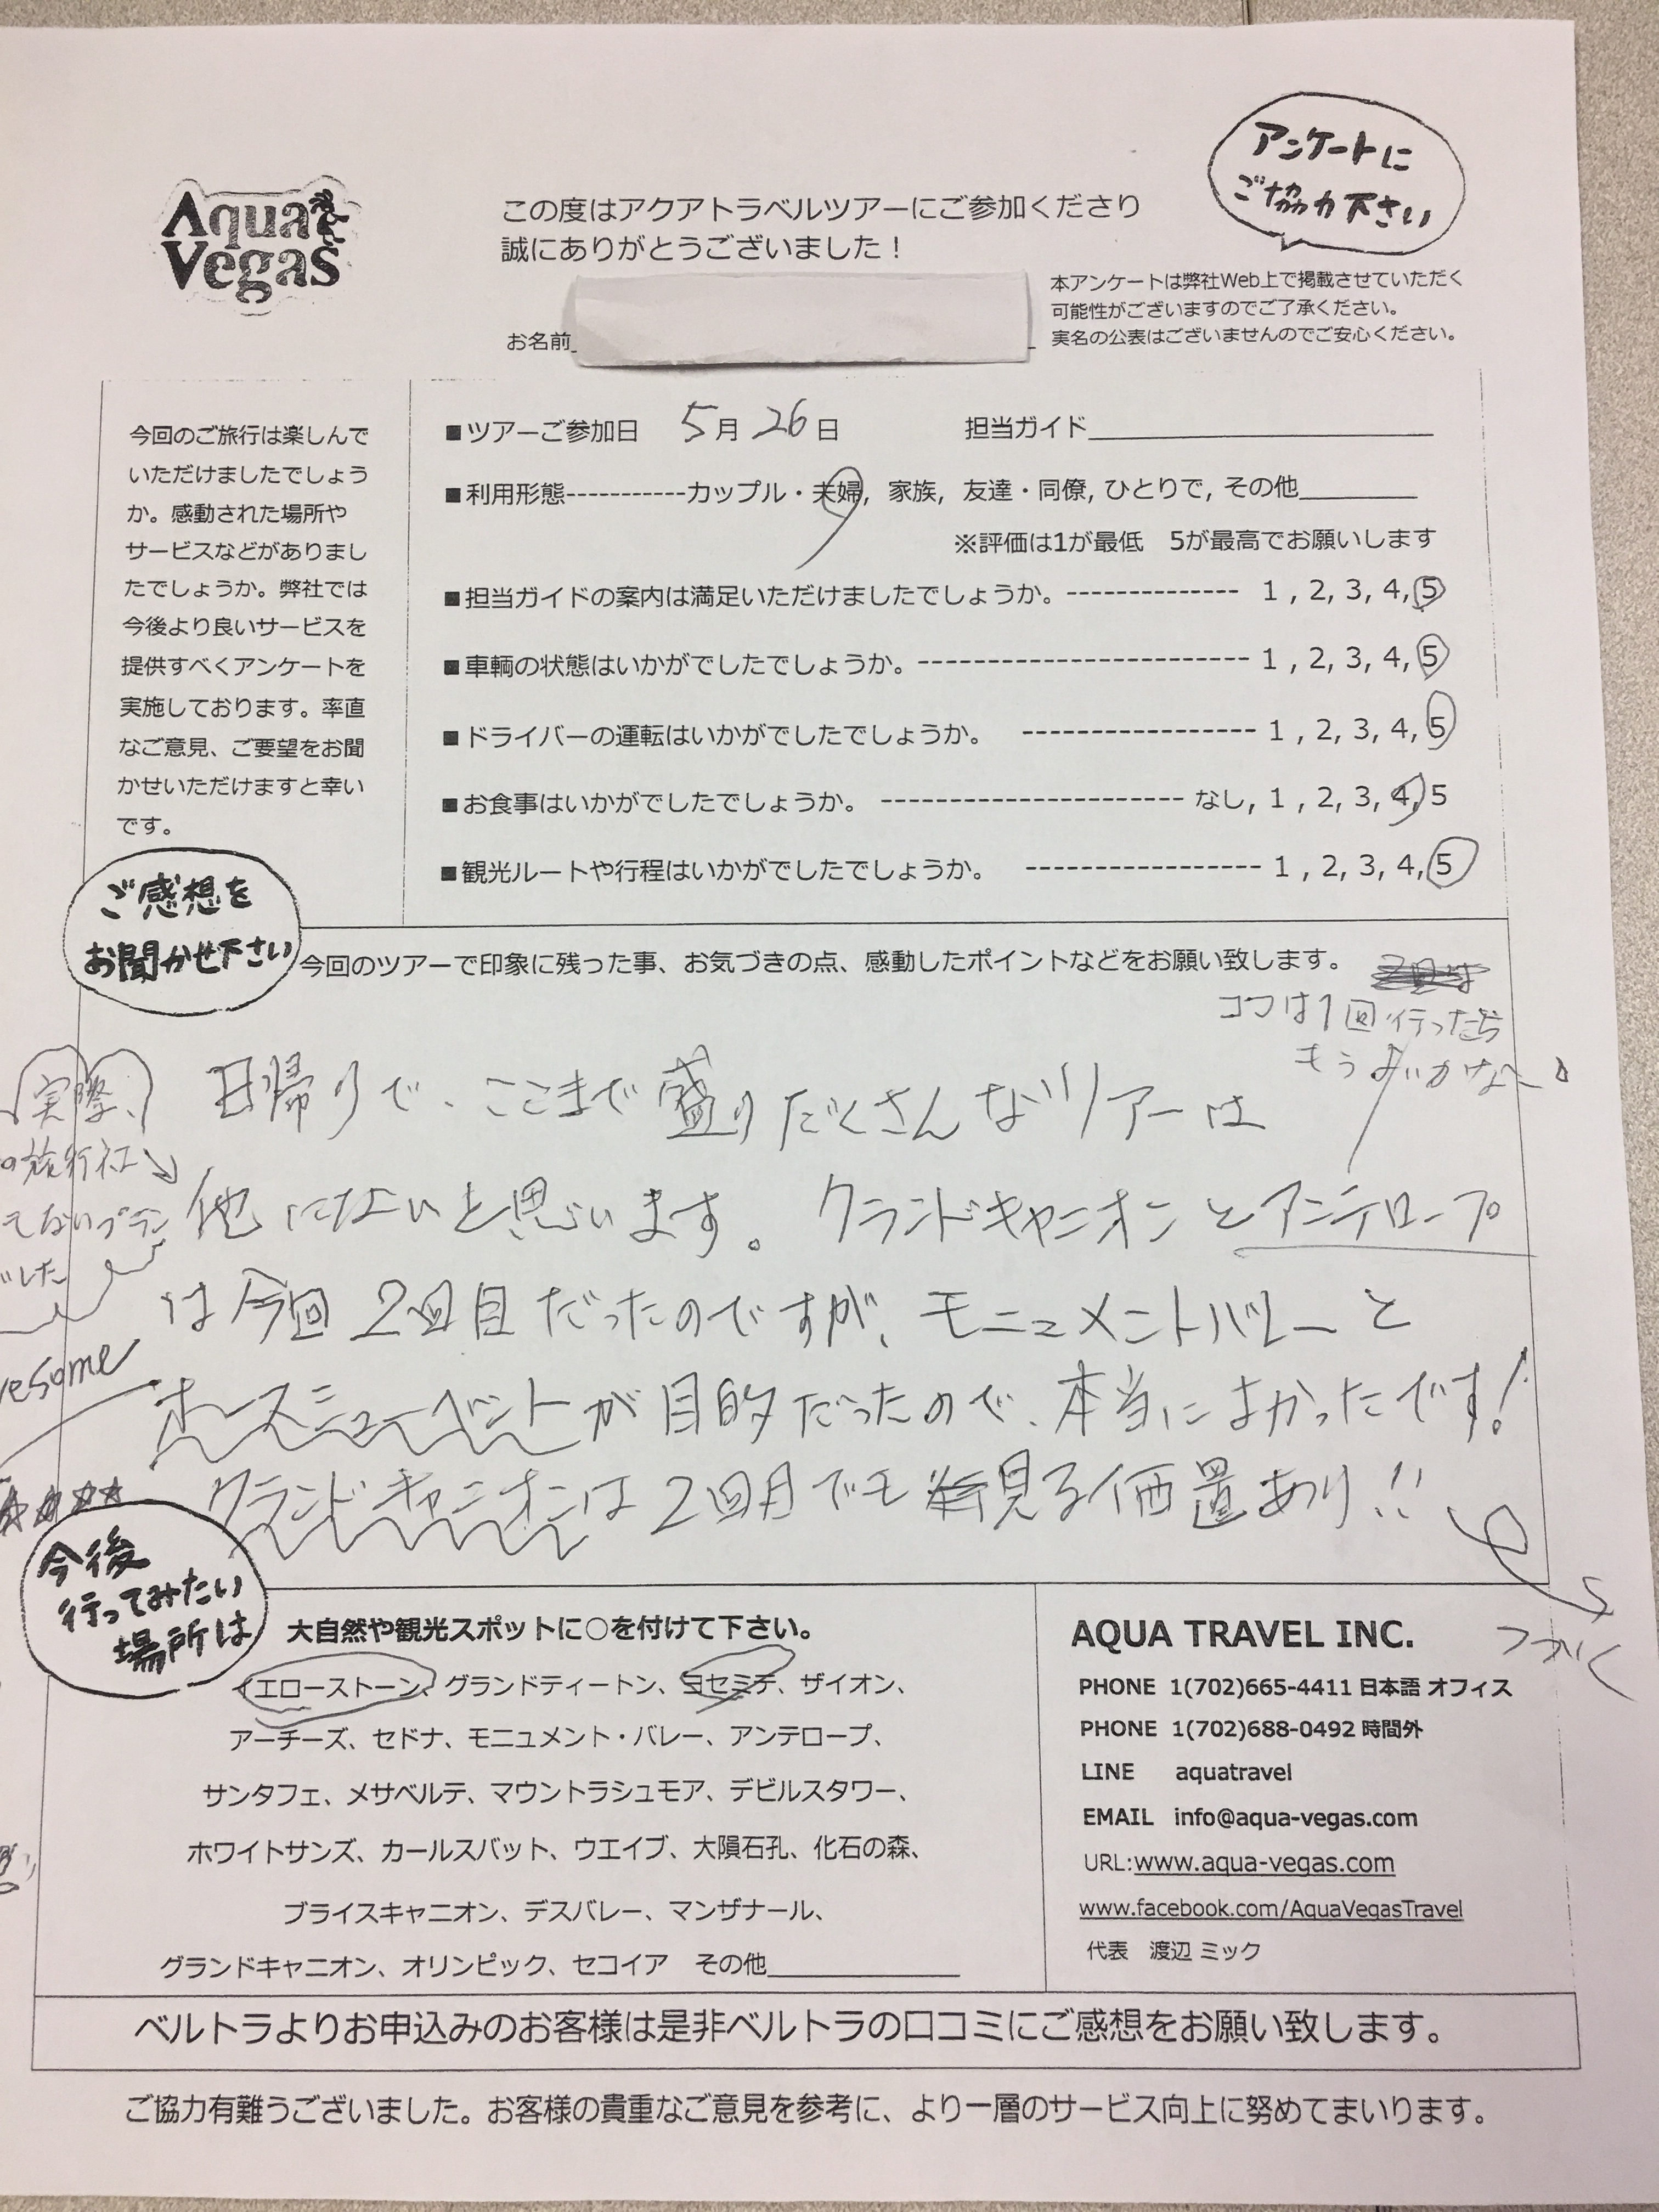 アンケートに
ご協力下さい
Aqua
Vegas
この度はアクアトラベルツアーにご参加くださり
誠にありがとうございました！
本アンケートは弊社Web上で掲載させていただく
可能性がございますのでご了承ください。
実名の公表はございませんのでご安心ください。
お名前
今回のご旅行は楽しんで
いただけましたでしょう
か。感動された場所や
サービスなどがありまし
たでしょうか。弊社では
今後より良いサービスを
提供すべくアンケートを
実施しております。率直
なご意見、ご要望をお聞
かせいただけますと幸い
です。
■ツアーご参加日 5月26日 担当ガイド
■利用形態-----------カップル・夫婦, 家族, 友達・同僚, ひとりで, その他
※評価は1が最低 5が最高でお願いします
■担当ガイドの案内は満足いただけましたでしょうか。-------------- 1 , 2, 3, 4, 5
■車輌の状態はいかがでしたでしょうか。----------------------- 1 , 2, 3, 4, 5
■ドライバーの運転はいかがでしたでしょうか。 ----------------- 1 , 2, 3, 4, 5
■お食事はいかがでしたでしょうか。 ---------------------- なし, 1 , 2, 3, 4, 5
■観光ルートや行程はいかがでしたでしょうか。 ----------------- 1 , 2, 3, 4, 5
ご感想を
お聞かせ下さい
今回のツアーで印象に残った事、お気づきの点、感動したポイントなどをお願い致します。
ココは1回行ったら
もういいかな〜。
実際、
の旅行社
てないプラン
でした
日帰りで、ここまで盛りだくさんなツアーは
他にないと思います。グランドキャニオンとアンテロープ
は今回2回目だったのですが、モニュメントバレーと
ホースシューベントが目的だったので、本当によかったです！
esome
グランドキャニオンは2回目でも見る価置あり!!
つづく
今後
行ってみたい
場所は
大自然や観光スポットに○を付けて下さい。
イエローストーン、グランドティートン、ヨセミテ、ザイオン、
アーチーズ、セドナ、モニュメント・バレー、アンテロープ、
サンタフェ、メサベルテ、マウントラシュモア、デビルスタワー、
ホワイトサンズ、カールスバット、ウエイブ、大隕石孔、化石の森、
ブライスキャニオン、デスバレー、マンザナール、
グランドキャニオン、オリンピック、セコイア その他
AQUA TRAVEL INC.
PHONE 1(702)665-4411 日本語 オフィス
PHONE 1(702)688-0492 時間外
LINE aquatravel
EMAIL info@aqua-vegas.com
URL:www.aqua-vegas.com
www.facebook.com/AquaVegasTravel
代表 渡辺 ミック
ベルトラよりお申込みのお客様は是非ベルトラの口コミにご感想をお願い致します。
ご協力有難うございました。お客様の貴重なご意見を参考に、より一層のサービス向上に努めてまいります。